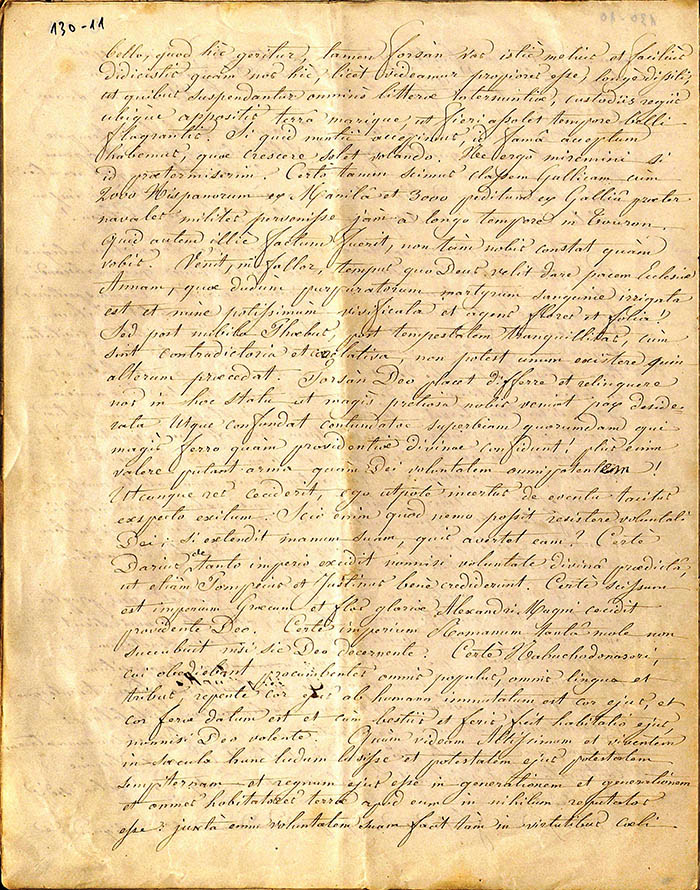 130-11
130-10
bello, quod hic geritur, tamen forsàn vos istìc melius et faciliùs
didicistis quàm nos hìc, licet videamur propiores esse, longe dissiti
ut quibus suspendantur omninò litteræ internuntiæ, custodiis regiis
ubique appositis terrâ marique, ut fieri assolet tempore belli
flagrantis. Si quid nuntii accepimus, id famâ acceptum
habemus, quæ crescere solet volando. Ne ergò miremini si
id prætermiserim. Certè tamen scimus classem Gallicam cum
2000 Hispanorum ex Manilâ et 3000 peditum ex Galliâ præter
navales milites pervenisse jam à longo tempore in Touron.
Quid autem illic factum fuerit, non tàm nobis constat quàm
vobis. Venit, ni fallor, tempus quo Deus velit dare pacem Ecclesiæ
Annam, quæ dudum purpuratorum martyrum sanguine irrigata
est et nunc potissimum vivificata et agens flores et folia!
Sed post nubila Phœbus, post tempestatem tranquillitas, cùm
sint contradictoria et correlativa, non potest unum existere quin
alterum præcedat. Forsàn Deo placet differre et relinquere
nos in hoc statu ut magis pretiosa nobis veniat pax deside-
rata utque confundat contundatque superbiam quorumdam qui
magis ferro quàm providentiæ divinæ confidunt! plus enim
valere putant arma quam Dei voluntatem omnipotentem!
Utcunque res ceciderit, ego utpotè incertus de eventu tacitus
exspecto exitum. Scio enim quòd nemo possit resistere voluntati
Dei: si extendit manum suam, quis avertet eam? Certè
Darius de tanto imperio excidit nonnisi voluntate divinâ prædictâ,
ut etiàm Pompeius et Justinus benè crediderunt. Certè scissum
est imperium Græcum et flos gloriæ Alexandri Magni cecidit
providente Deo. Certè imperium Romanum tantâ mole non
succubuit nisi sic Deo decernente. Certè Nabuchodonosori,
cui obediebant procumbentes omnis populus, omnis lingua et
tribus repente cor ejus ab humano immutatum est cor ejus, et
cor feræ datum est et cum bestiis et feris fuit habitatio ejus,
nonnisi Deo volente. Quàm videam Altissimum et viventem
in sæcula hunc ludum lusisse et potestatem ejus potestatem
sempiternam et regnum ejus esse in generationem et generationem
et omnes habitatores terræ apud eum in nihilum reputatos
esse: juxtà enim voluntatem suam facit tàm in virtutibus cœli